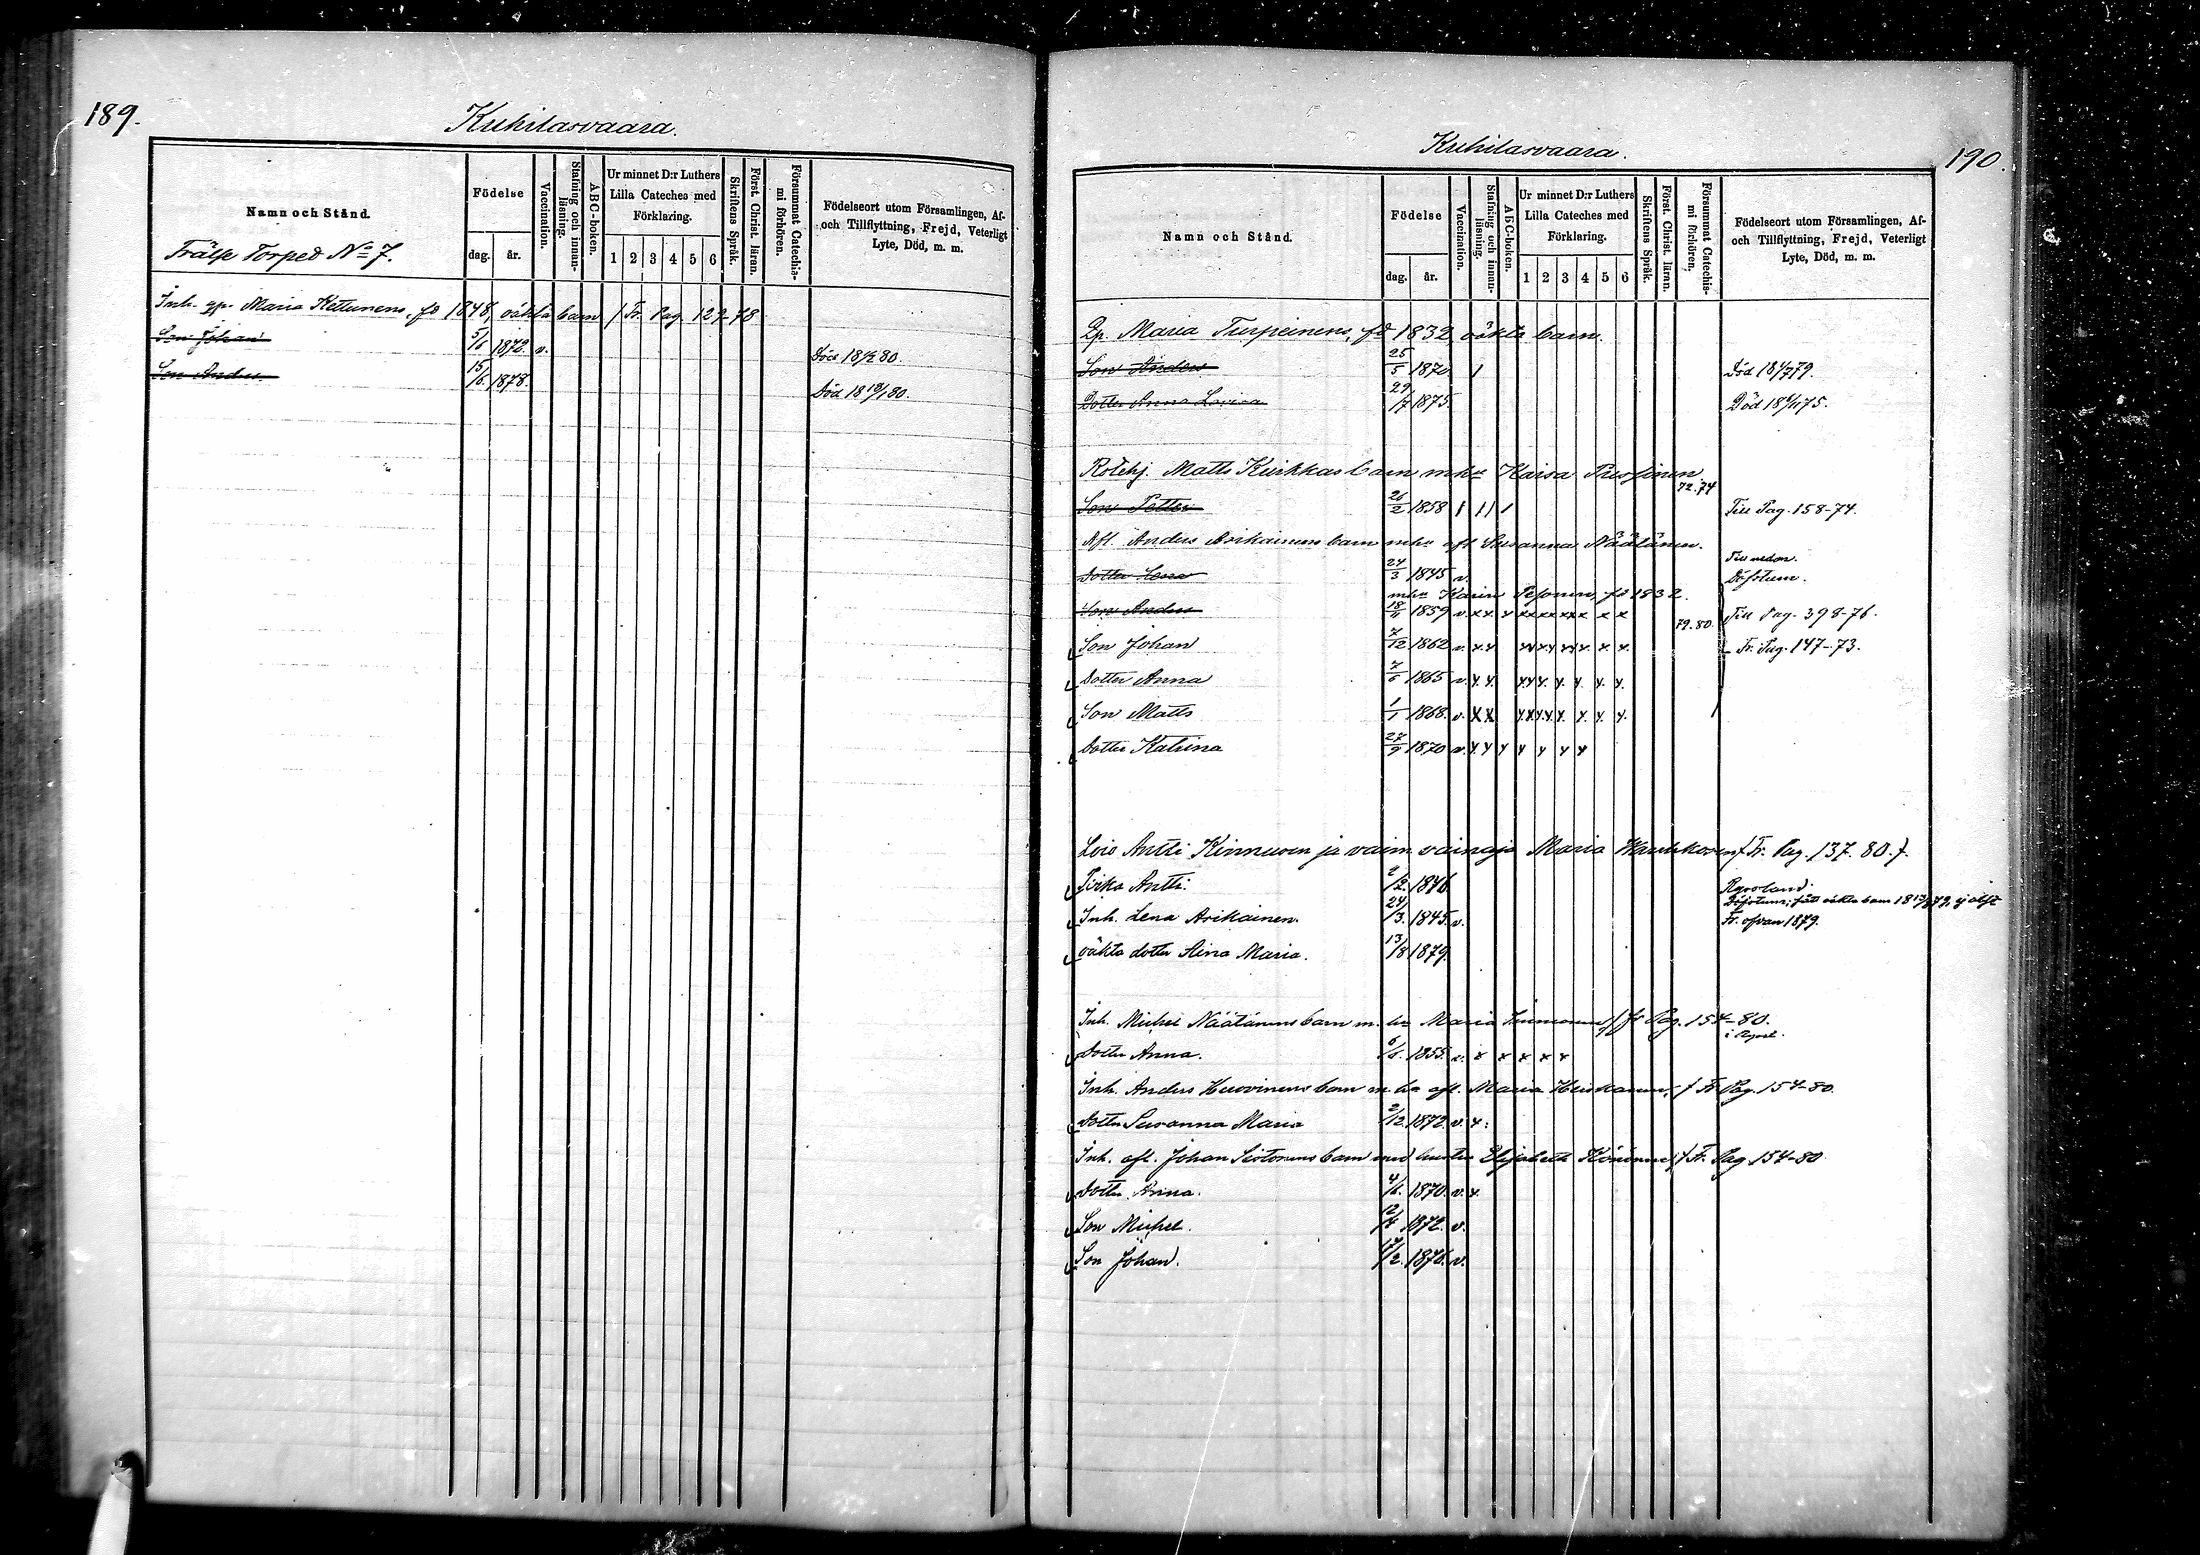 189.
Kuhilasvaara.
Namn och Stånd.
Födelse
dag. år.
Vaccination.
Stafning och innanläsning.
ABC-boken.
Ur minnet D:r Luthers Lilla Cateches med Förklaring.
1 2 3 4 5 6
Skriftens Språk.
Först. Christ. läran.
Försummat Catechismi förhören.
Födelseort utom Församlingen, Af- och Tillflyttning, Frejd, Veterligt Lyte, Död, m. m.
Frälse Torped No 7.
Inh. qp. Maria Kettunens, fd 1848, oäkta barn / Fr. Pag. 129-78
Son Johan 5/6 1872. v. Död 80.
Son Anders 15/6 1878. Död 80.
190.
Kuhilasvaara.
Namn och Stånd.
Födelse
dag. år.
Vaccination.
Stafning och innanläsning.
ABC-boken.
Ur minnet D:r Luthers Lilla Cateches med Förklaring.
1 2 3 4 5 6
Skriftens Språk.
Först. Christ. läran.
Försummat Catechismi förhören.
Födelseort utom Församlingen, Af- och Tillflyttning, Frejd, Veterligt Lyte, Död, m. m.
Qp. Maria Turpeinens, fd 1832 oäkta barn.
Son Anders 25/5 1870 / Död 79.
Dotter Anna Lovisa 29/7 1875. Död 75.
Matts Kurkkas barn m hu Kaisa
72.74
Son Petter 26/2 1858 Till Pag. 158-74.
Afl. Anders Arikainens barn mhu afl Susanna Näätänen.
Till nedan.
Dotter Lena 24/3 1845 v. Döfstum.
mhu Karin fd 1832.
Son Anders 18/11 1859 v. x x x x x x x x x x Till Pag. 398-76.
79.80.
Son Johan 7/12 1862 v. x x x x x x x x x Fr. Pag. 147-73.
Dotter Anna 7/6 1865 v. x x. x x x. x. x. x. x.
Son Matts 1/1 1868. v. x x x x x x x x. x. x.
Dotter Katrina 27/9 1870 v. x x x x x x x
Antti Kinnunen ja vaim vainaja Maria / Fr. Pag. 137. 80. /.
Poika Antti. 2/2. 1846.
Ryssland.
Döfstum; fått oäkta barn
Inh. Lena Arikainen. 24/3. 1845. v. Fr. ofvan 1879.
oäkta dotter Aina Maria. 13/8 1879.
Inh. Michel Näätänens barn m. hu Maria / fr Pag. 154-80.
Dotter Anna. 6/6. 1855. v. x x x x x
Inh. Anders Huovinens barn m hu afl. Maria / Fr Pag. 154-80.
Dotter Susanna Maria 2/12. 1872. v. x.
Inh. afl. Johan barn med hustru Elisabeth Könönen / Fr. Pag 154-80
Dotter Anna. 4/6. 1870. v. x.
Son Michel. 12/4 1872. v.
Son Johan. 17/2. 1876. v.